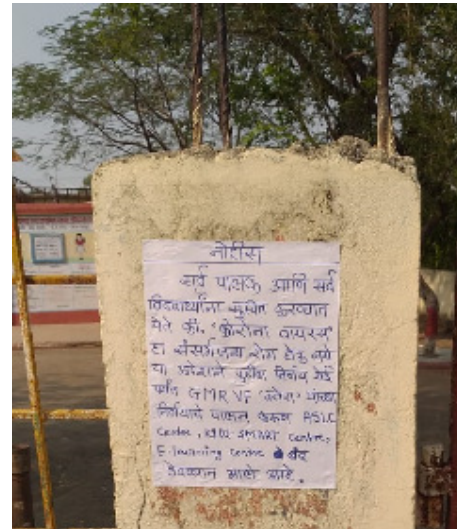 नोटीस
सर्व पालक आणि सर्व
विद्यार्थ्यांना सूचित करण्यात
येते की, "कोरोना वायरस"
हा संसर्गजन्य रोग होऊ नये
या पुढील निर्णय येई
पर्यंत GMRVF
पालन करून ASLC
Centre, KIDS SMART Centre,
E-learning Centre बंद
ठेवण्यात आले आहे.